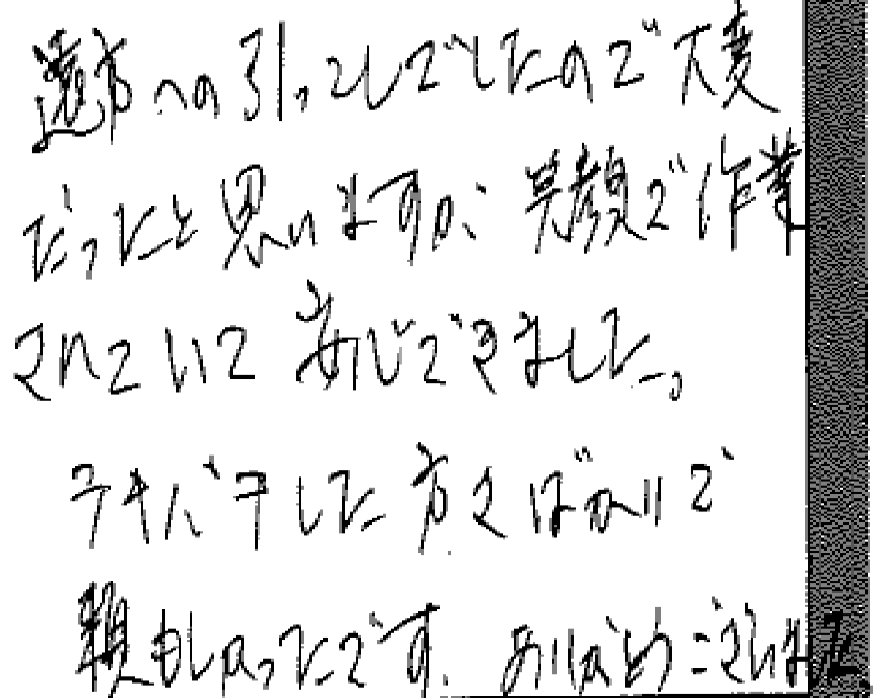 遠方への引っこしでしたので大変
だったと思いますが 笑顔で作業
されていて 安心できました。
テキパキした方々ばかりで
頼もしかったです。ありがとうございました